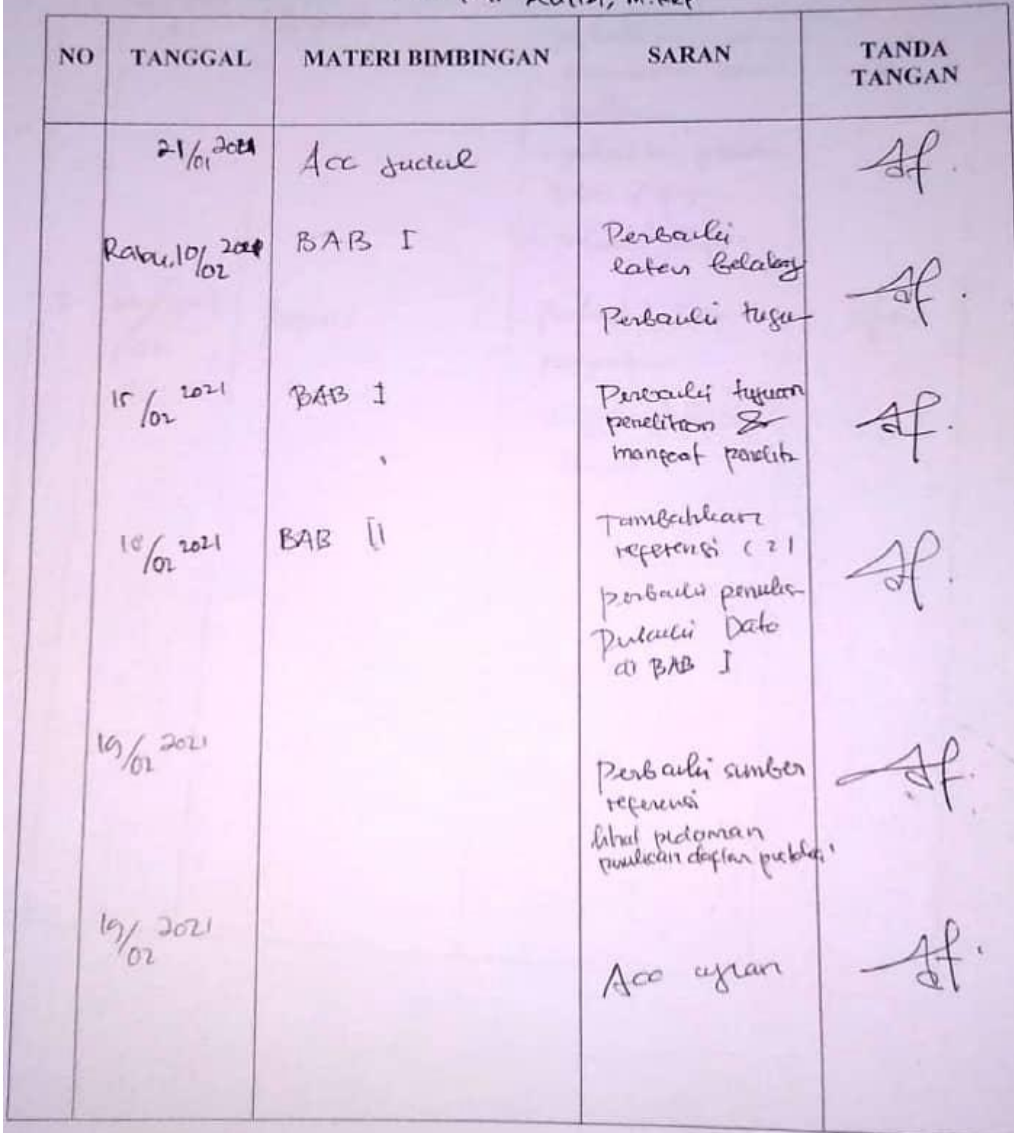 M.Kep
NO TANGGAL MATERI BIMBINGAN SARAN TANDA TANGAN
21/01 2021 Acc Judul
Rabu, 10/02 2021 BAB I Perbaiki
latar belakang
Perbaiki tujuan
15/02 2021 BAB I Perbaiki tujuan
penelitian &
manfaat penelit
18/02 2021 BAB II Tambahkan
referensi (2)
perbaiki penulis
Perbaiki Data
di BAB I
19/02 2021
Perbaiki sumber
referensi
lihat pedoman
penulisan daftar pustaka
19/02 2021
Acc ujian